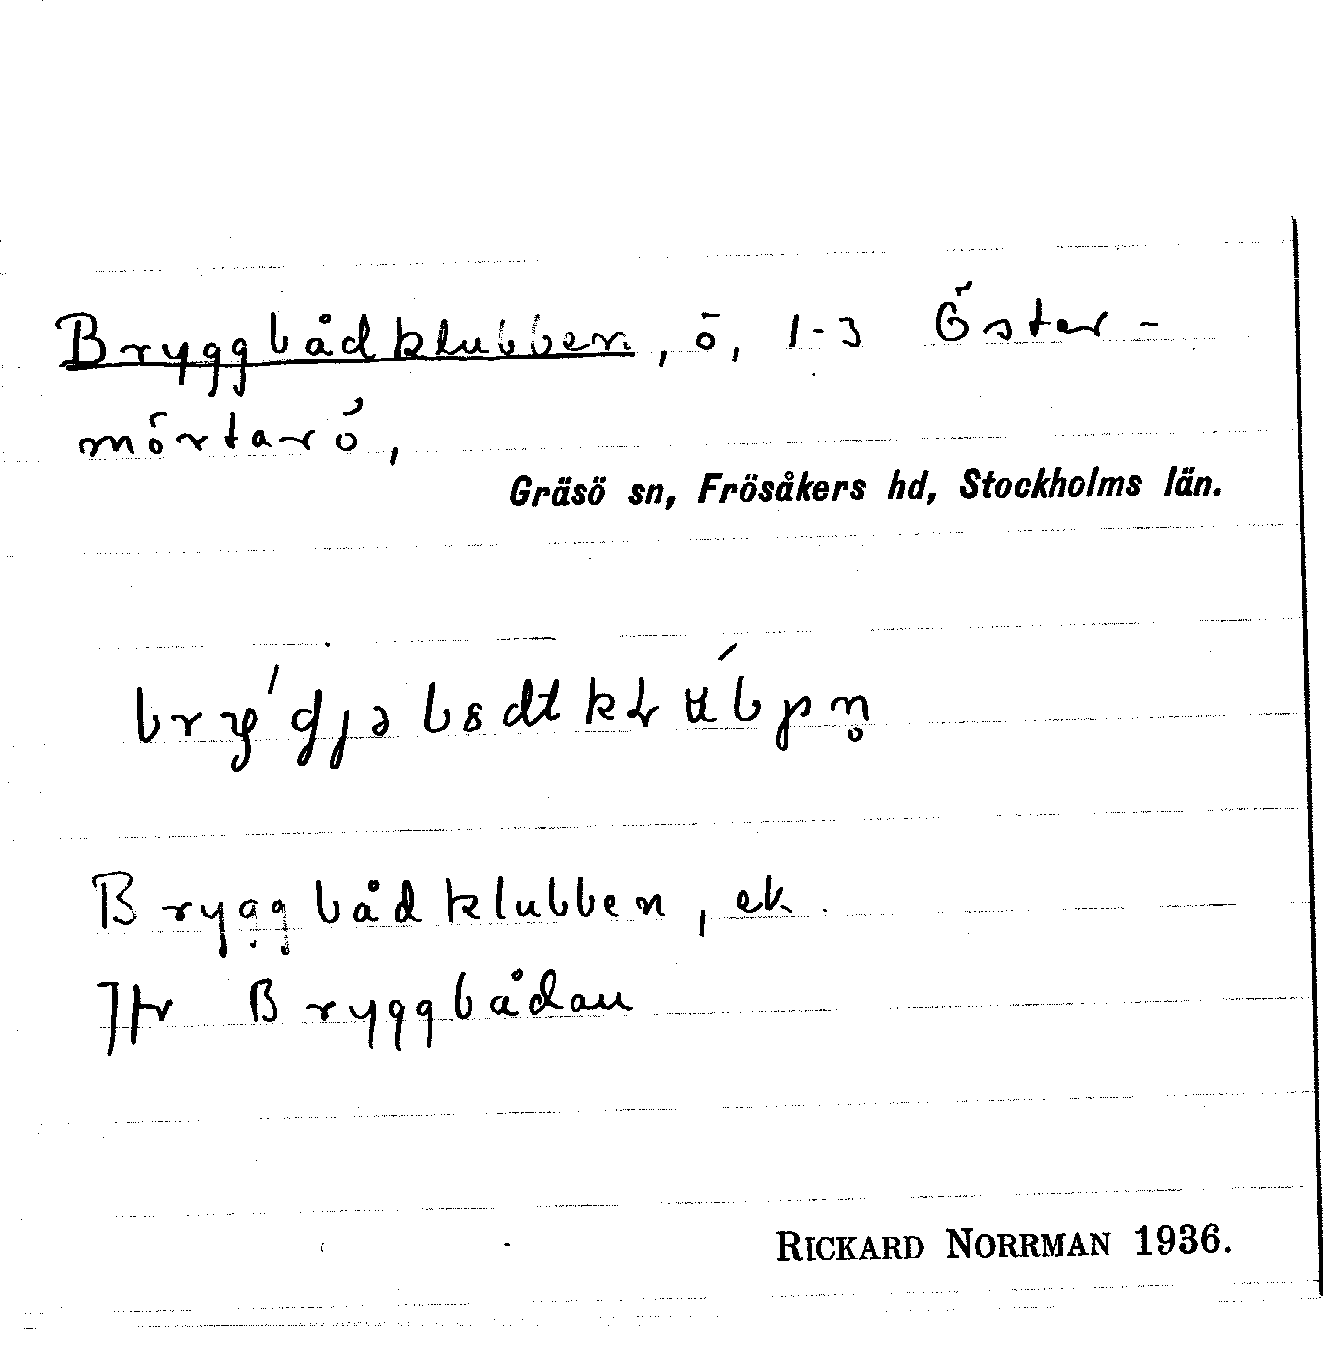 Bryggbådklubben, ö, 1-3 Öster-
mörtarö,
Gräsö sn, Frösåkers hd, Stockholms län.
Bryggbådklubben, ek.
Jfr Bryggbådan
RICKARD NORRMAN 1936.